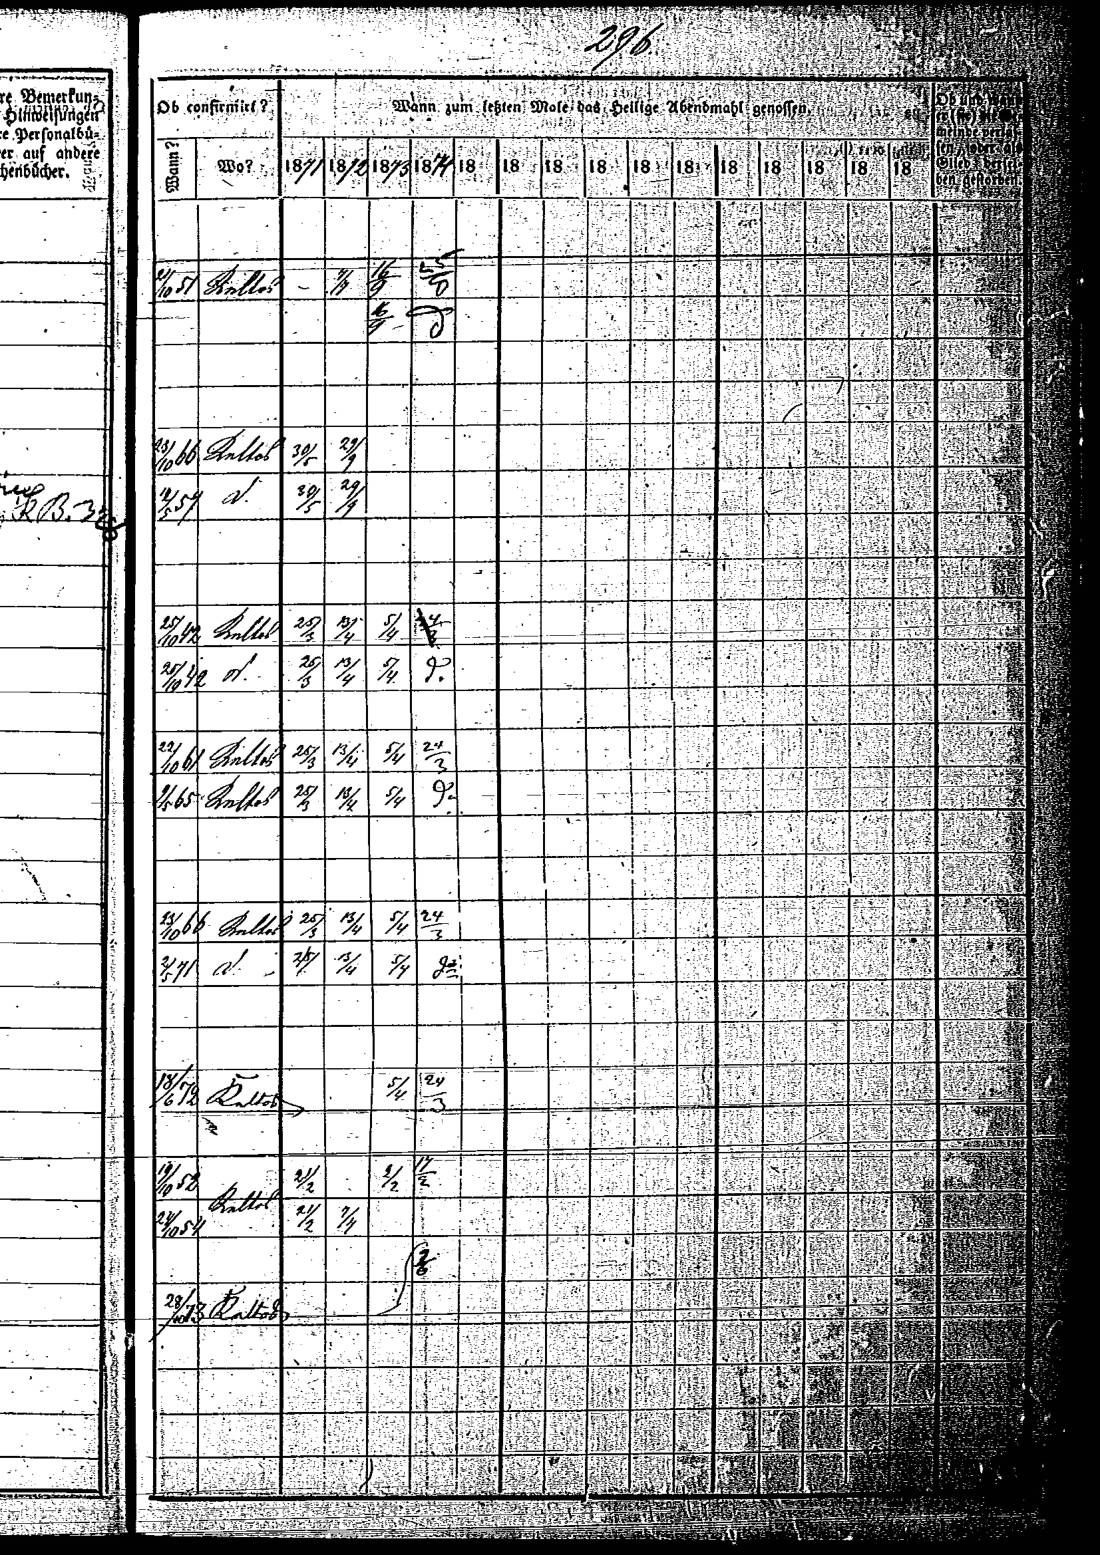 296
re Bemerkun-
Hinweisungen
re Personalbü-
er auf andere
chenbücher.
Ob confirmirt? Wann zum letzten Male das Heilige Abendmahl genossen. Ob und wann
er (sie) die Ge-
meinde verlas-
sen, oder als
Glied dersel-
ben gestorben.
Wann? Wo? 1871 1872 1873 1874 18 18 18 18 18 18 18 18 18 18 18
51 Kaltos - 16/9 25/8
16/9 d
23/10 66 Kaltos 30/5 29/9
59 d. 30/5 29/9
K B. 
25/10 42 Kaltos 25/3 13/4 5/4 24/3
25/10 42 d. 25/3 13/4 5/4 d.
22/10 61 Kaltos 25/3 13/4 5/4 24/3
65 Kaltos 25/3 13/4 5/4 d.
23/10 66 Kaltos 25/3 13/4 5/4 24/3
2/5 71 d. 25/ 13/4 5/4 do
18/6 72 Kaltos 5/4 24/3
19/10 52 21/2 2/2 17/2
Kaltos
24/10 54 21/2 7/4
28/10 73 Kaltos